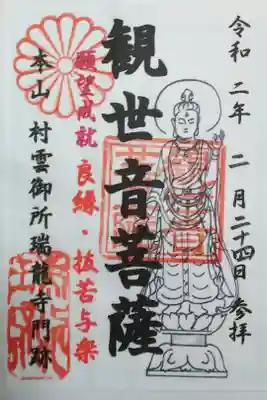 令和二年二月二十四日参拝
観世音菩薩
願望成就良縁・抜苦与楽
本山村雲御所瑞龍寺門跡